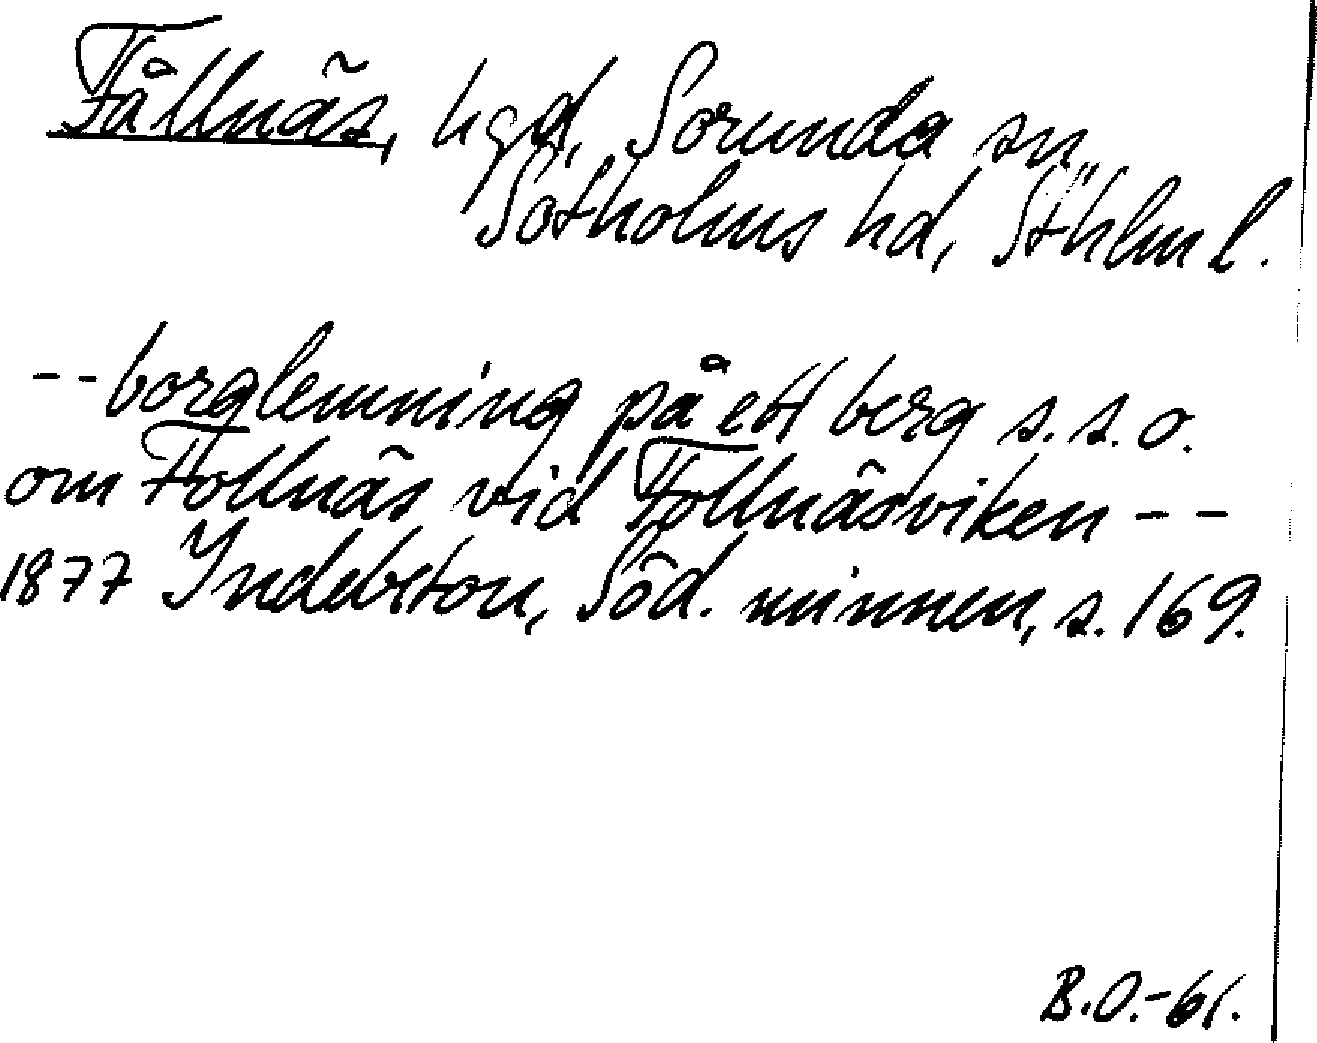 Fållnäs, hgd, Sorunda sn,
Sotholms hd, Sthlm l.
-- borglemning på ett berg s.s.o.
om Follnäs vid Follnäsviken --
1877 Indebetou, Söd. minnen, s. 169.
B.O.-61.